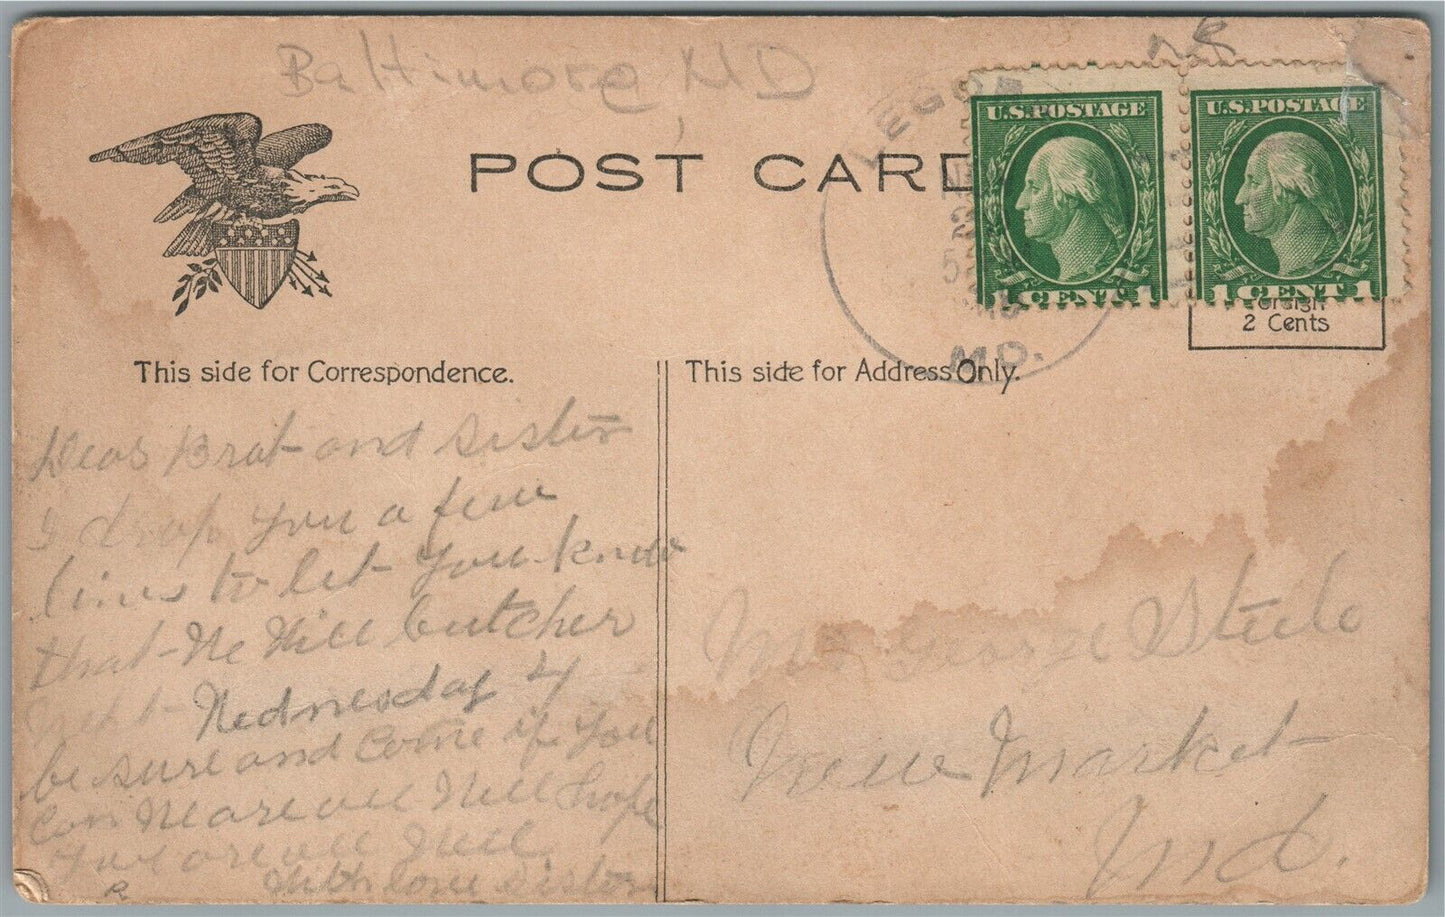 Baltimore, MD
POST CARD
LEGOR
MD.
U.S.POSTAGE
1 CENT 1
U.S.POSTAGE
1 CENT 1
2 Cents
This side for Correspondence.
This side for Address Only.
Dear Brat and sister
I drop you a few
lines to let you know
that We Will butcher
next Wednesday 4
be sure and Come if you
Can We are all Well hope
you are all Well
With love sister
Mrs George Steele
New Market
Md.